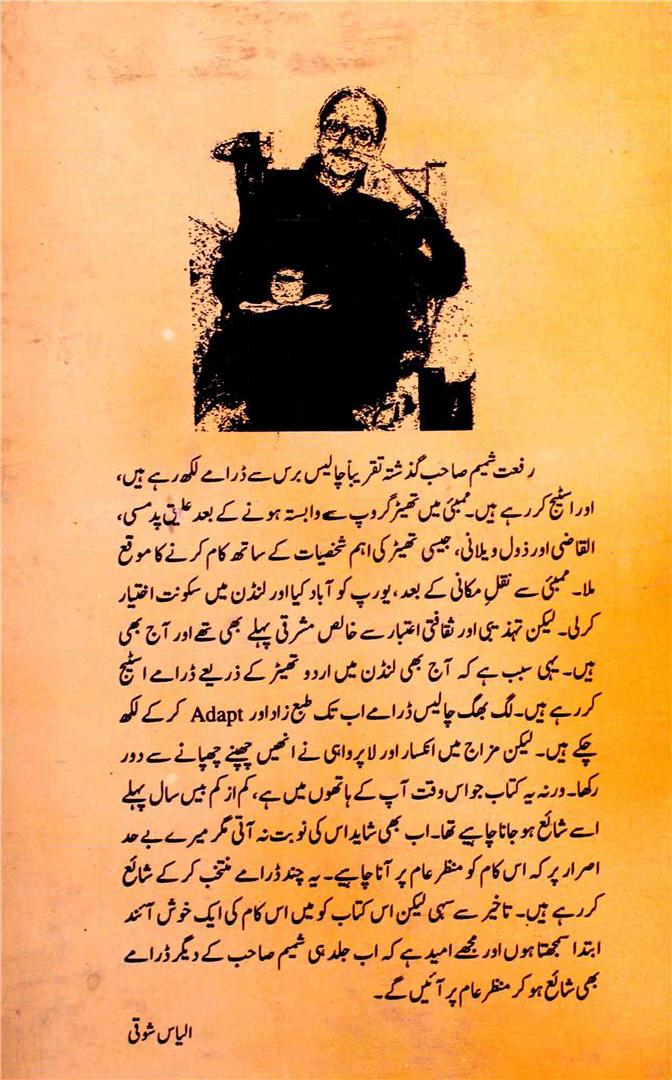 رفعت شمیم صاحب گذشتہ تقریباً چالیس برس سے ڈرامے لکھ رہے ہیں،
اور اسٹیج کر رہے ہیں۔ ممبئی میں تھیٹر گروپ سے وابستہ ہونے کے بعد علیق پدمسی،
القاضی اور ذول ویلانی، جیسی تھیٹر کی اہم شخصیات کے ساتھ کام کرنے کا موقع
ملا۔ ممبئی سے نقلِ مکانی کے بعد، یورپ کو آباد کیا اور لنڈن میں سکونت اختیار
کرلی۔ لیکن تہذیبی اور ثقافتی اعتبار سے خالص مشرقی پہلے بھی تھے اور آج بھی
ہیں۔ یہی سبب ہے کہ آج بھی لنڈن میں اردو تھیٹر کے ذریعے ڈرامے اسٹیج
کر رہے ہیں۔ لگ بھگ چالیس ڈرامے اب تک طبع زاد اور Adapt کر کے لکھ
چکے ہیں۔ لیکن مزاج میں انکسار اور لاپرواہی نے انھیں چھپنے چھپانے سے دور
رکھا۔ ورنہ یہ کتاب جو اس وقت آپ کے ہاتھوں میں ہے، کم از کم بیس سال پہلے
اسے شائع ہو جانا چاہیے تھا۔ اب بھی شاید اس کی نوبت نہ آتی مگر میرے بے حد
اصرار پر کہ اس کام کو منظر عام پر آنا چاہیے۔ یہ چند ڈرامے منتخب کر کے شائع
کر رہے ہیں۔ تاخیر سے سہی لیکن اس کتاب کو میں اس کام کی ایک خوش آئند
ابتدا سمجھتا ہوں اور مجھے امید ہے کہ اب جلد ہی شمیم صاحب کے دیگر ڈرامے
بھی شائع ہو کر منظر عام پر آئیں گے۔
الیاس شوقی